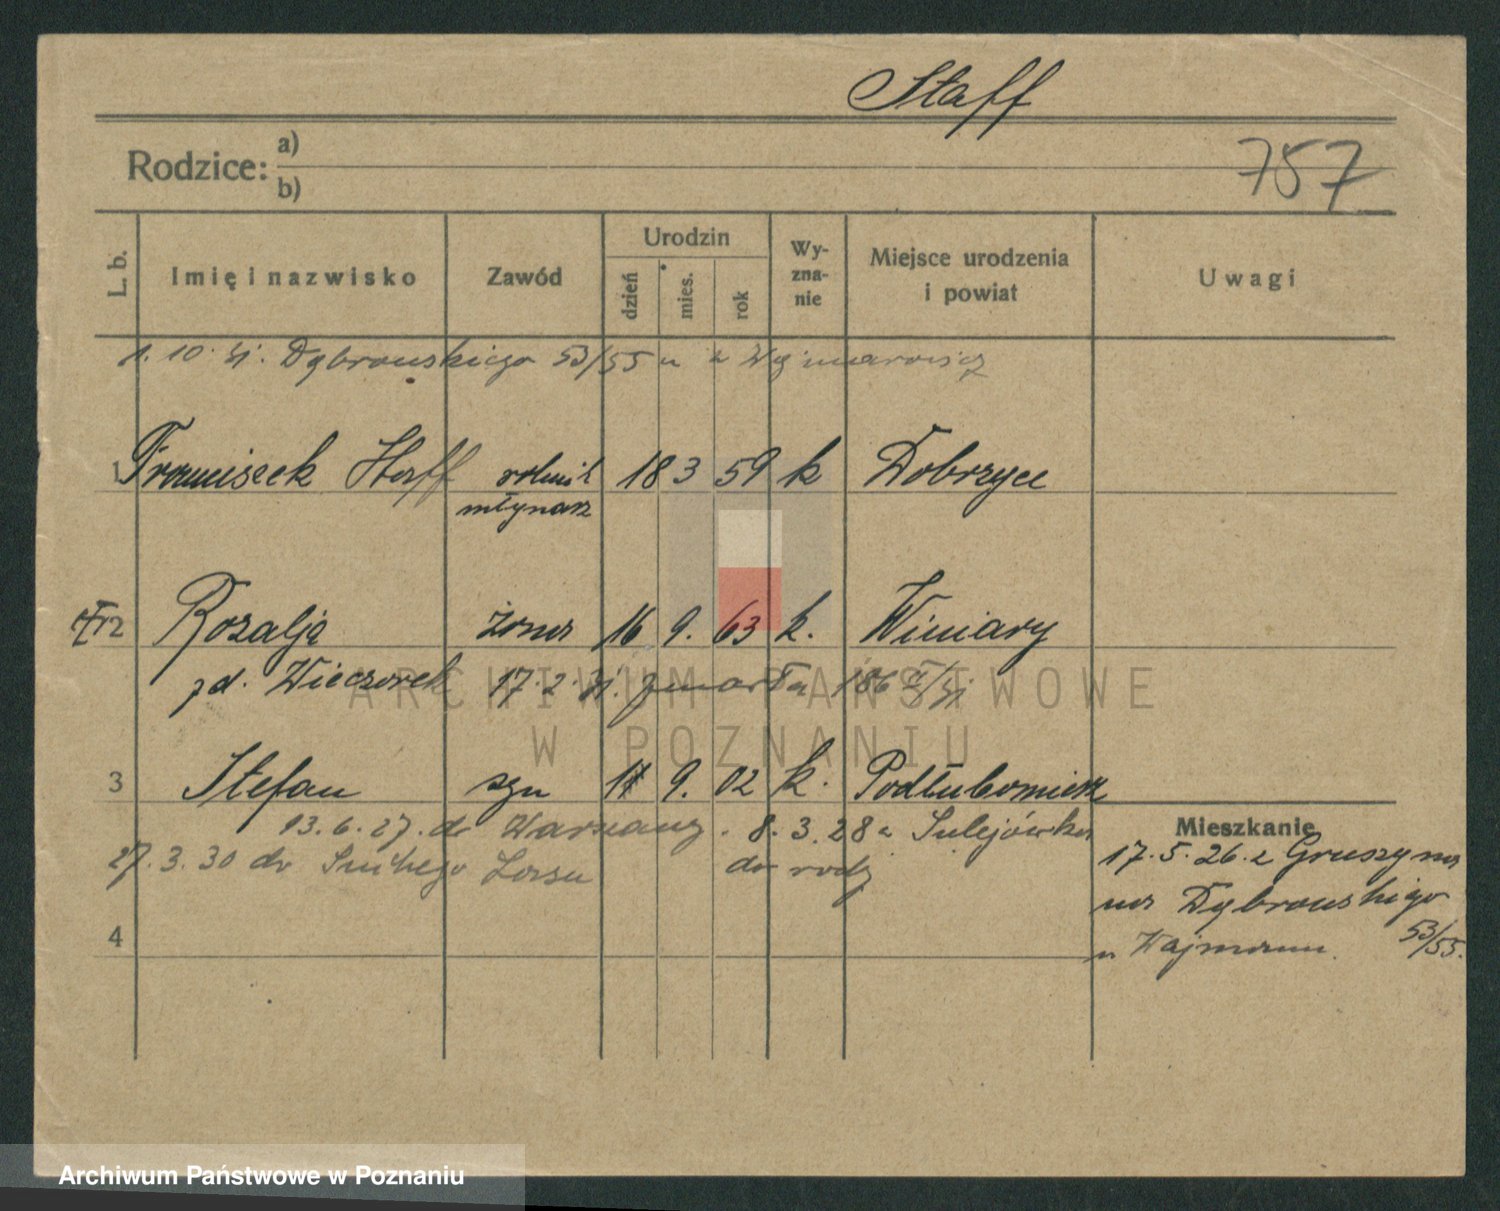 Staff
Rodzice: a)
b)
757
L. b.
Imię i nazwisko
Zawód
Urodzin
dzień
mies.
rok
Wy-
zna-
nie
Miejsce urodzenia
i powiat
Uwagi
1. 10. 31. Dąbrowskiego 53/55 u
1 Franciszek Staff rolnik 18 3 59 k Dobrzyce
młynarz
2 Rozalja żona 16 9. 63 k. Winiary
zd. Wieczorek 17.2.31. zmarła
3 Stefan syn 9. 02 k.
13.6.27. do Warszawy. 8.3.28 z Sulejówka
27.3.30 do Lasu do rodz
Mieszkanie
17.5.26. z Gruszyna
na Dąbrowskiego
53/55.
u
4
ARCHIWUM PAŃSTWOWE
W POZNANIU
Archiwum Państwowe w Poznaniu